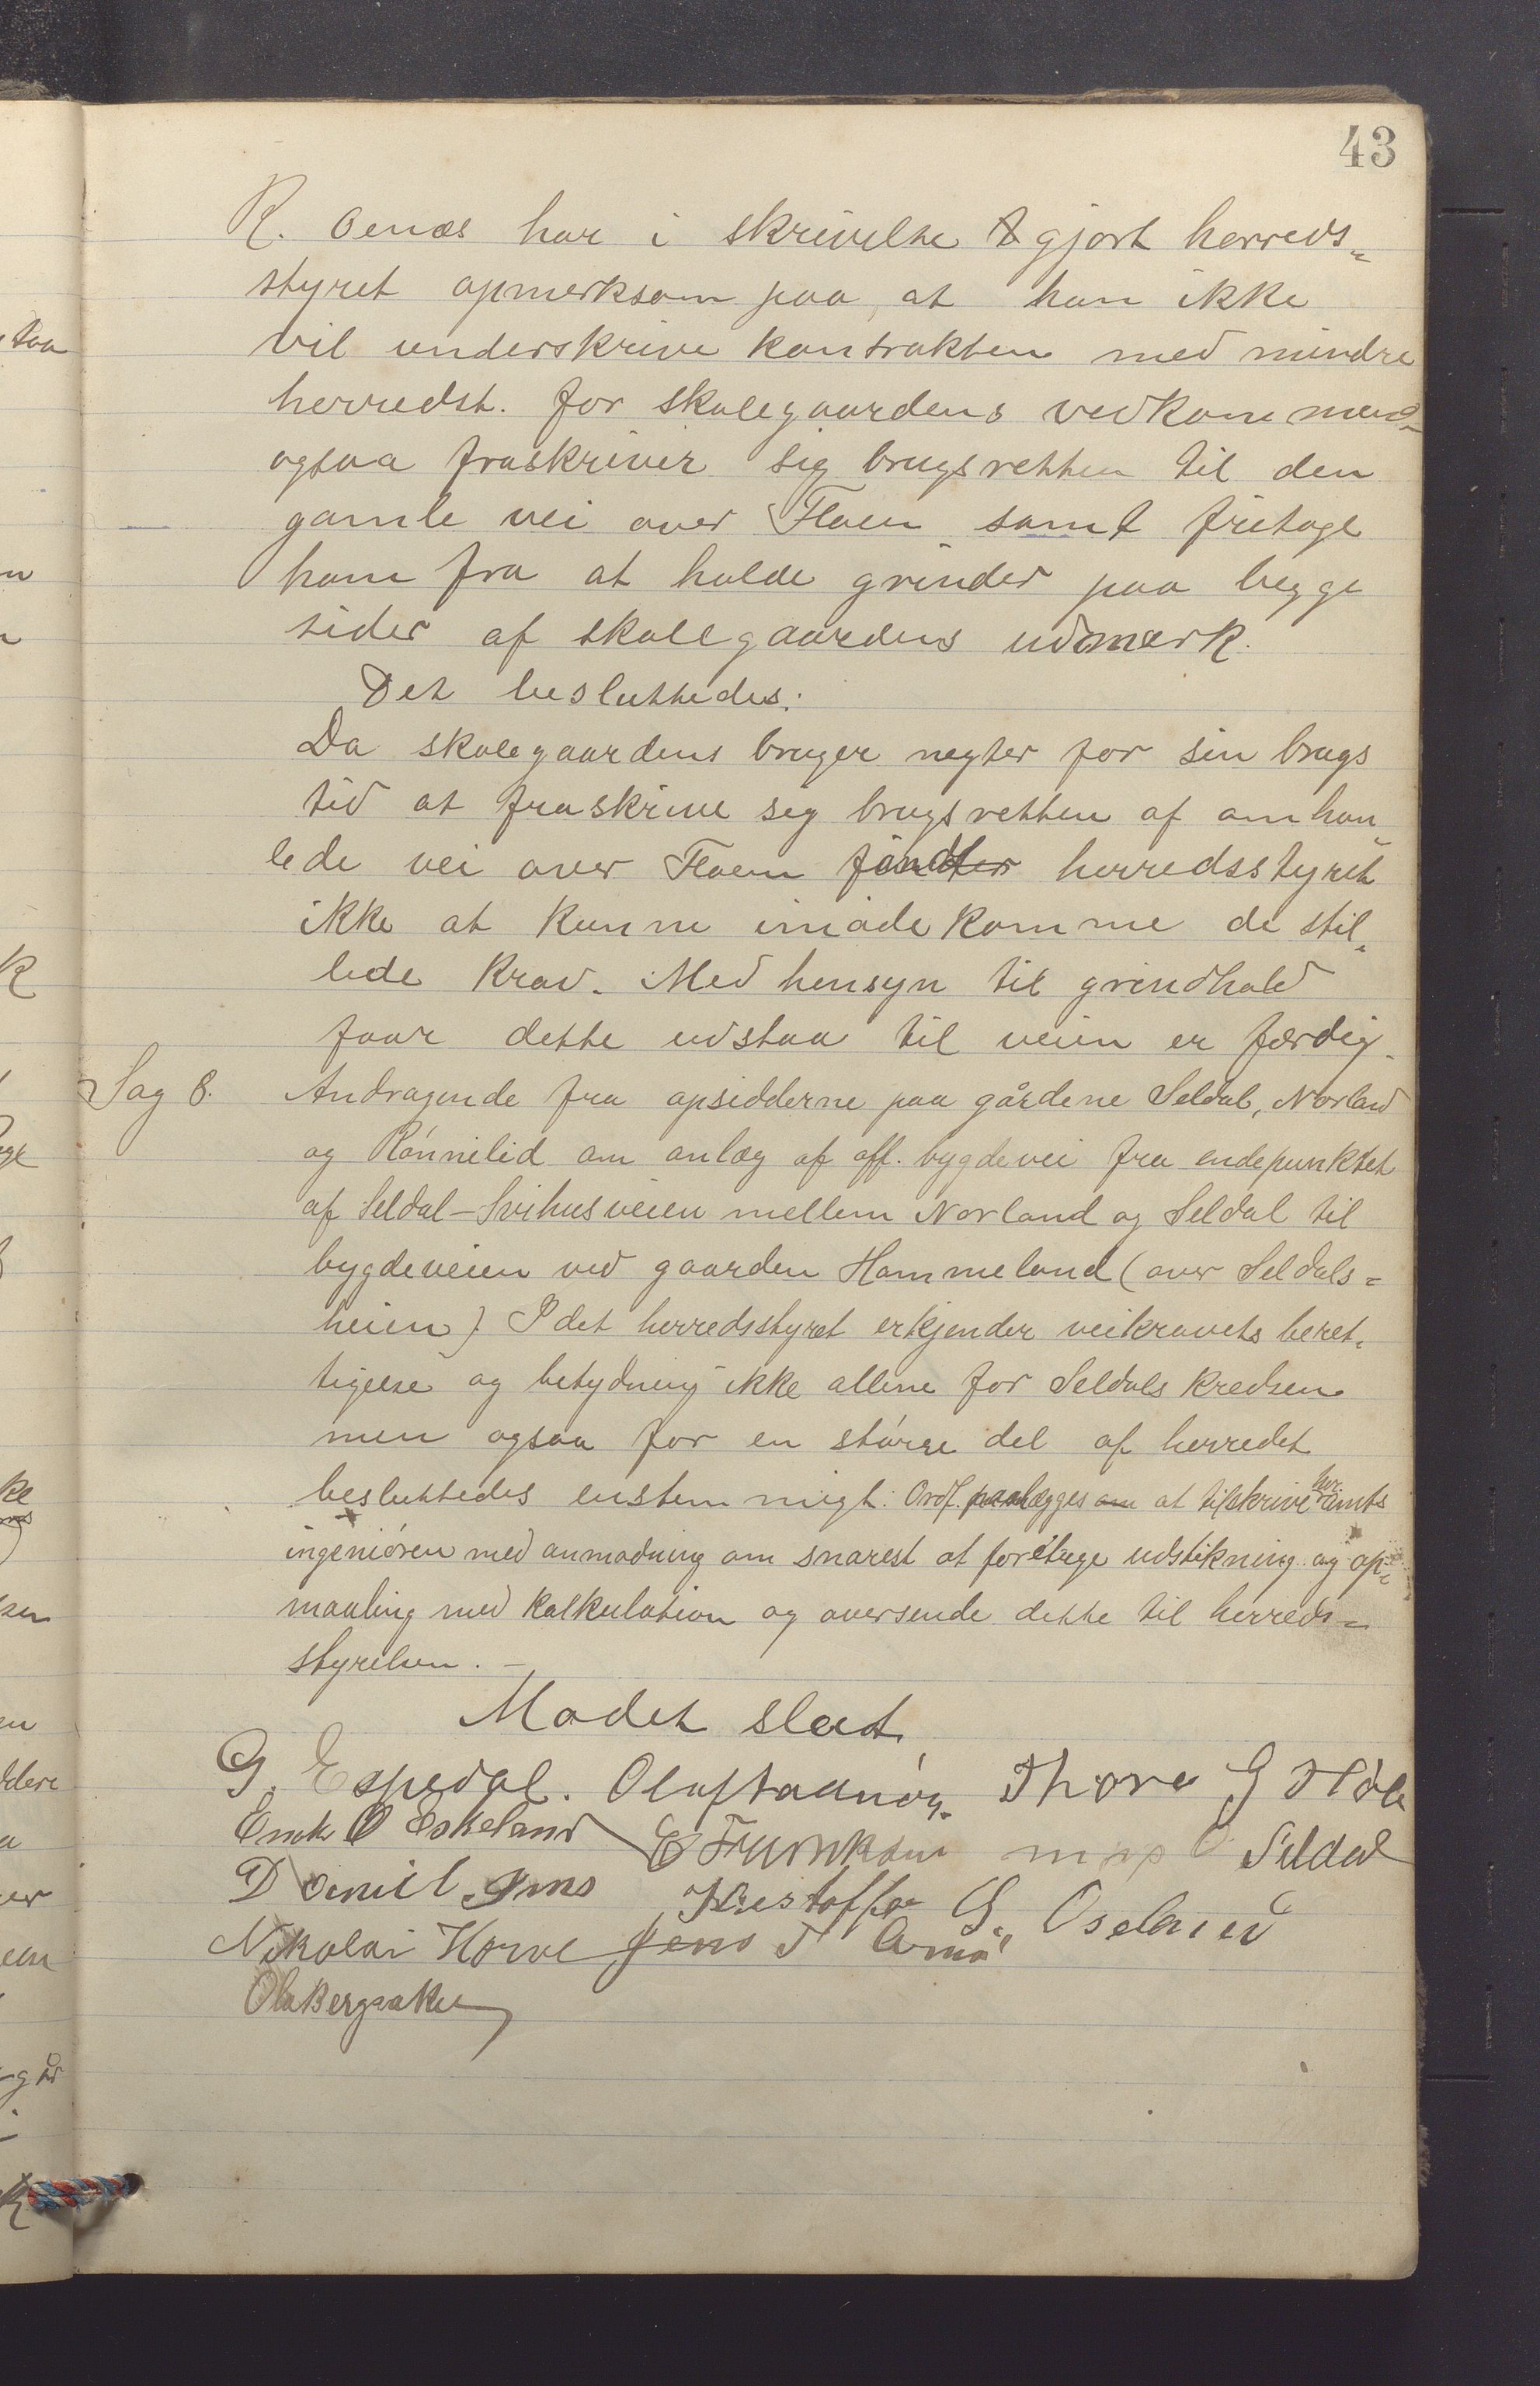 43
R. Aenæs har i skrivelse gjort herreds-
styret opmerksom paa, at han ikke
vil underskrive kontrakten med mindre
herredst. for skolegaardens vedkommend-
ogsaa fraskriver sig brugsretten til den
gamle vei over Floen samt fritage
ham fra at holde grinder paa begge
sider af skolegaardens udmærk.
Det besluttedes:
Da skolegaardens bruger negter for sin brugs
tid at fraskrive sig brugsretten af omhan-
lede vei over Floen finder herredsstyret
ikke at kunne imødekomme de stil-
lede krav. Med hensyn til grindhold
faar dette udstaa til veien er færdig.
Sag 8. Andragende fra opsidderne paa gårdene Seldal, Norland
og Rønnelid om anlæg af off. bygdevei fra endepunktet
af Seldal-Svihusveien mellem Norland og Seldal til
bygdeveien ved gaarden Hommeland (over Seldals-
heien). Idet herredsstyret erkjender veikravets beret-
tigelse og betydning ikke allene for Seldals kredsen
men ogsaa for en større del af herredet
besluttedes enstemmigt: Ordf. paalægges om at tilskrive hr. amts
ingeniøren med anmodning om snarest at foretage udstikning og op-
maaling med kalkulation og oversende dette til herreds-
styrelsen. -
Mødet slut
G. Espedal. Oluf Thore G Høle
O Eskeland Seldal
Daniel Kristoffer G. Oseland
Nikolai Horve Jens T
Ola Bergaaker